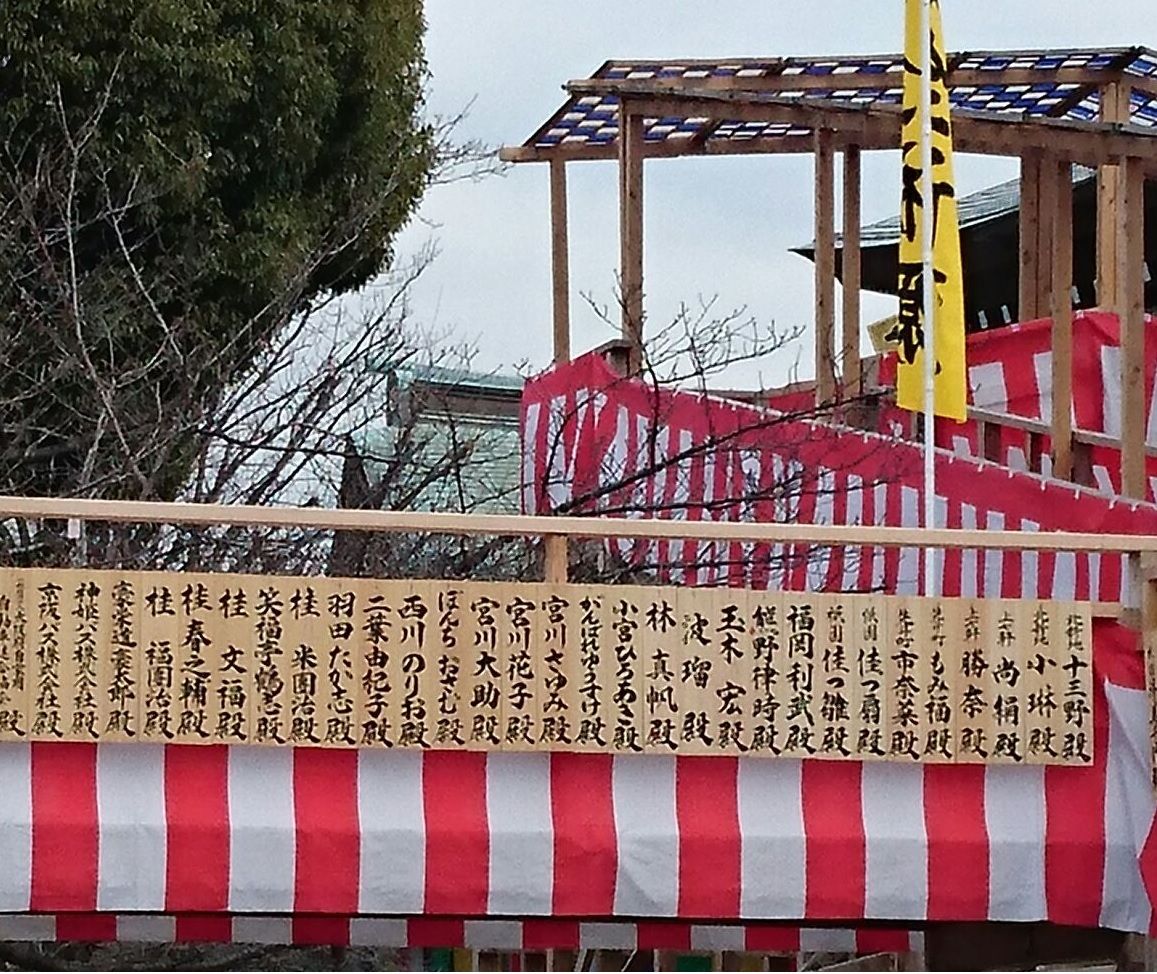 北新地 十三野殿
北新地 小琳殿
上七軒 尚絹殿
上七軒 勝奈殿
もみ福殿
市奈菜殿
祇園 佳つ扇殿
祇園 佳つ雛殿
福岡利武殿
熊野律時殿
玉木宏殿
波瑠殿
林真帆殿
小宮ひろあき殿
がんばれゆうすけ殿
宮川さゆみ殿
宮川花子殿
宮川大助殿
ぼんちおさむ殿
西川のりお殿
二葉由紀子殿
羽田たか志殿
桂米團治殿
笑福亭鶴志殿
桂文福殿
桂春之輔殿
桂福團治殿
豪家逹豪太郎殿
神姫バス株式会社殿
京阪バス株式会社殿